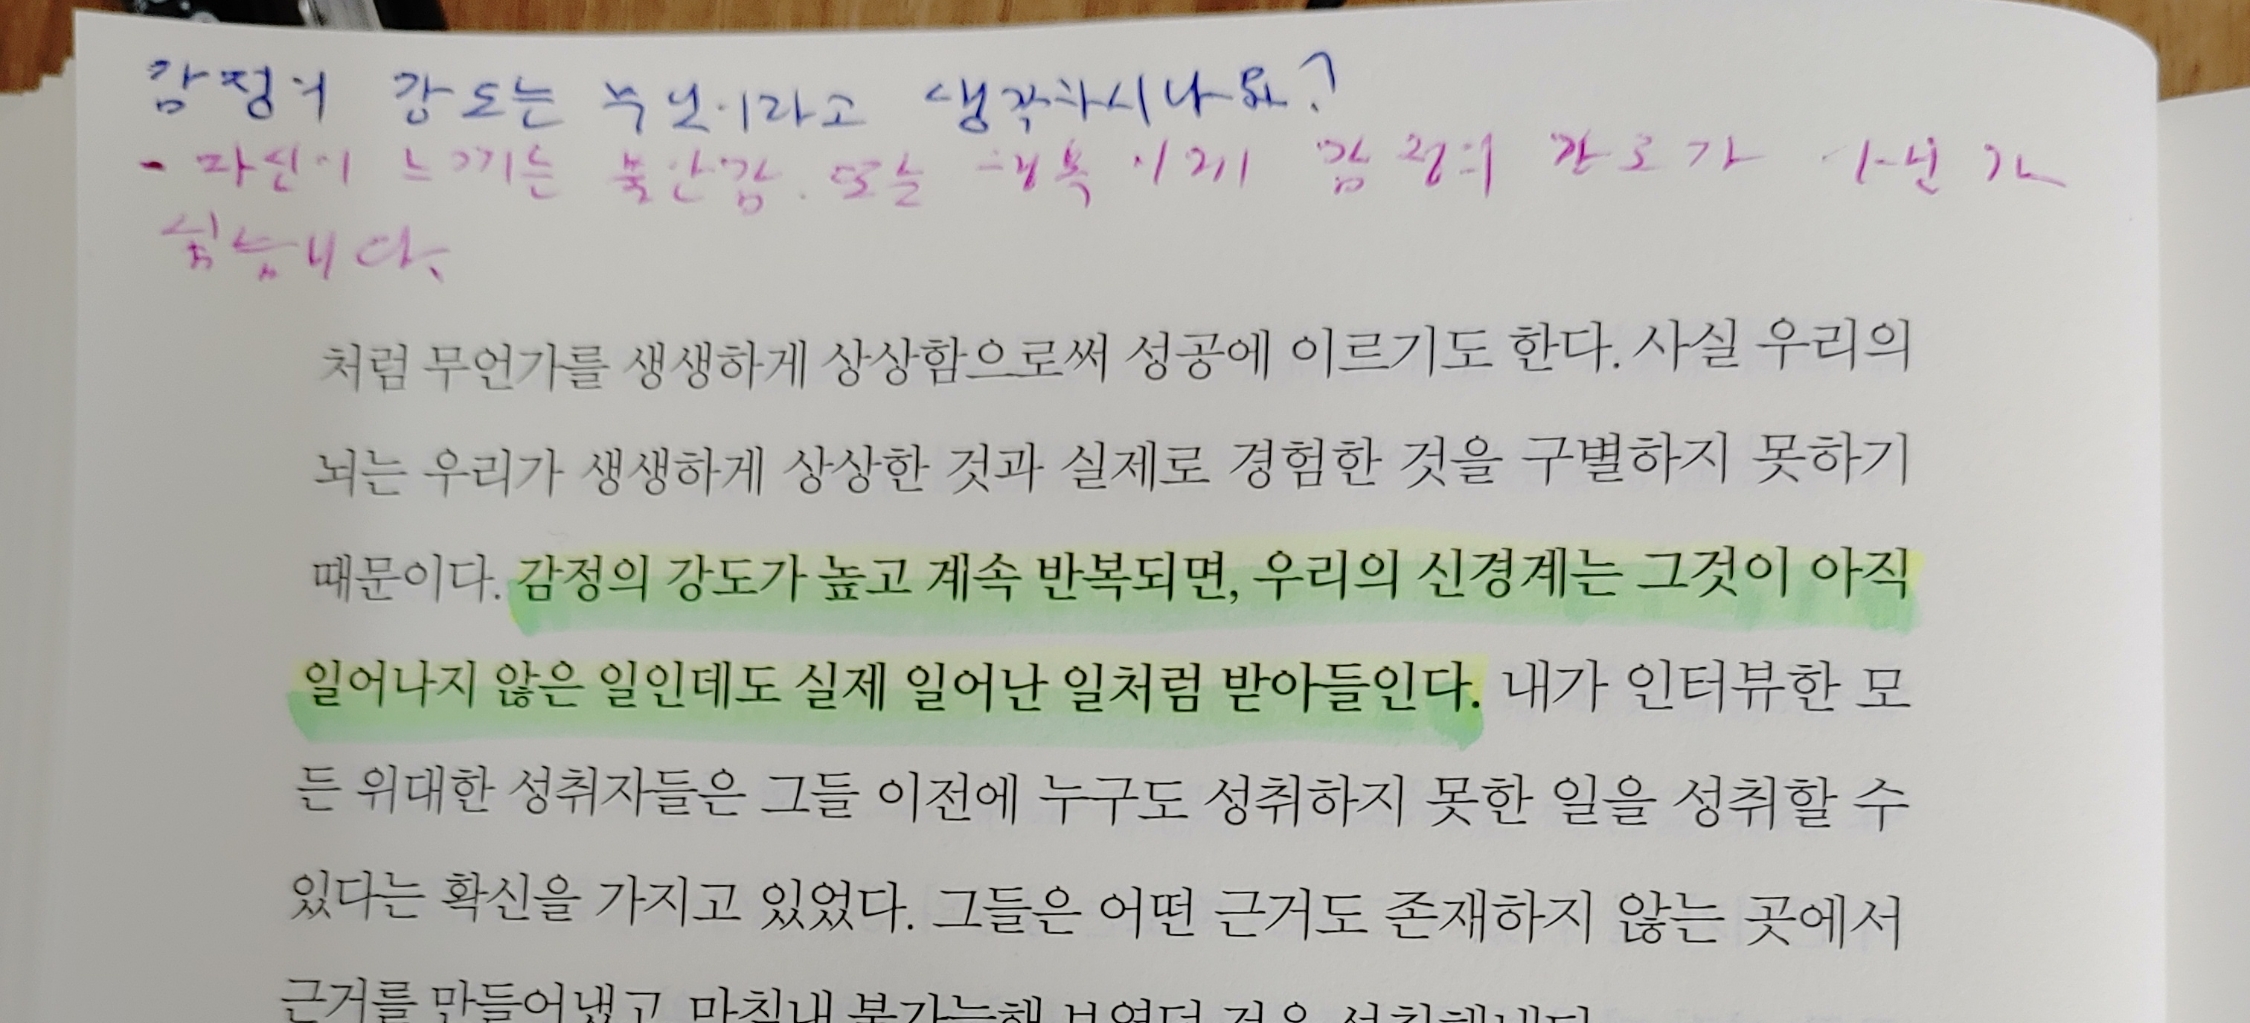 감정의 강도는 무엇이라고 생각하시나요?
- 자신이 느끼는 불안감. 또는 행복 감정의 강도가
싶습니다.
처럼 무언가를 생생하게 상상함으로써 성공에 이르기도 한다. 사실 우리의
뇌는 우리가 생생하게 상상한 것과 실제로 경험한 것을 구별하지 못하기
때문이다. 감정의 강도가 높고 계속 반복되면, 우리의 신경계는 그것이 아직
일어나지 않은 일인데도 실제 일어난 일처럼 받아들인다. 내가 인터뷰한 모
든 위대한 성취자들은 그들 이전에 누구도 성취하지 못한 일을 성취할 수
있다는 확신을 가지고 있었다. 그들은 어떤 근거도 존재하지 않는 곳에서
근거를 만들어냈고, 마침내 불가능해 보였던 것을 성취해냈다.